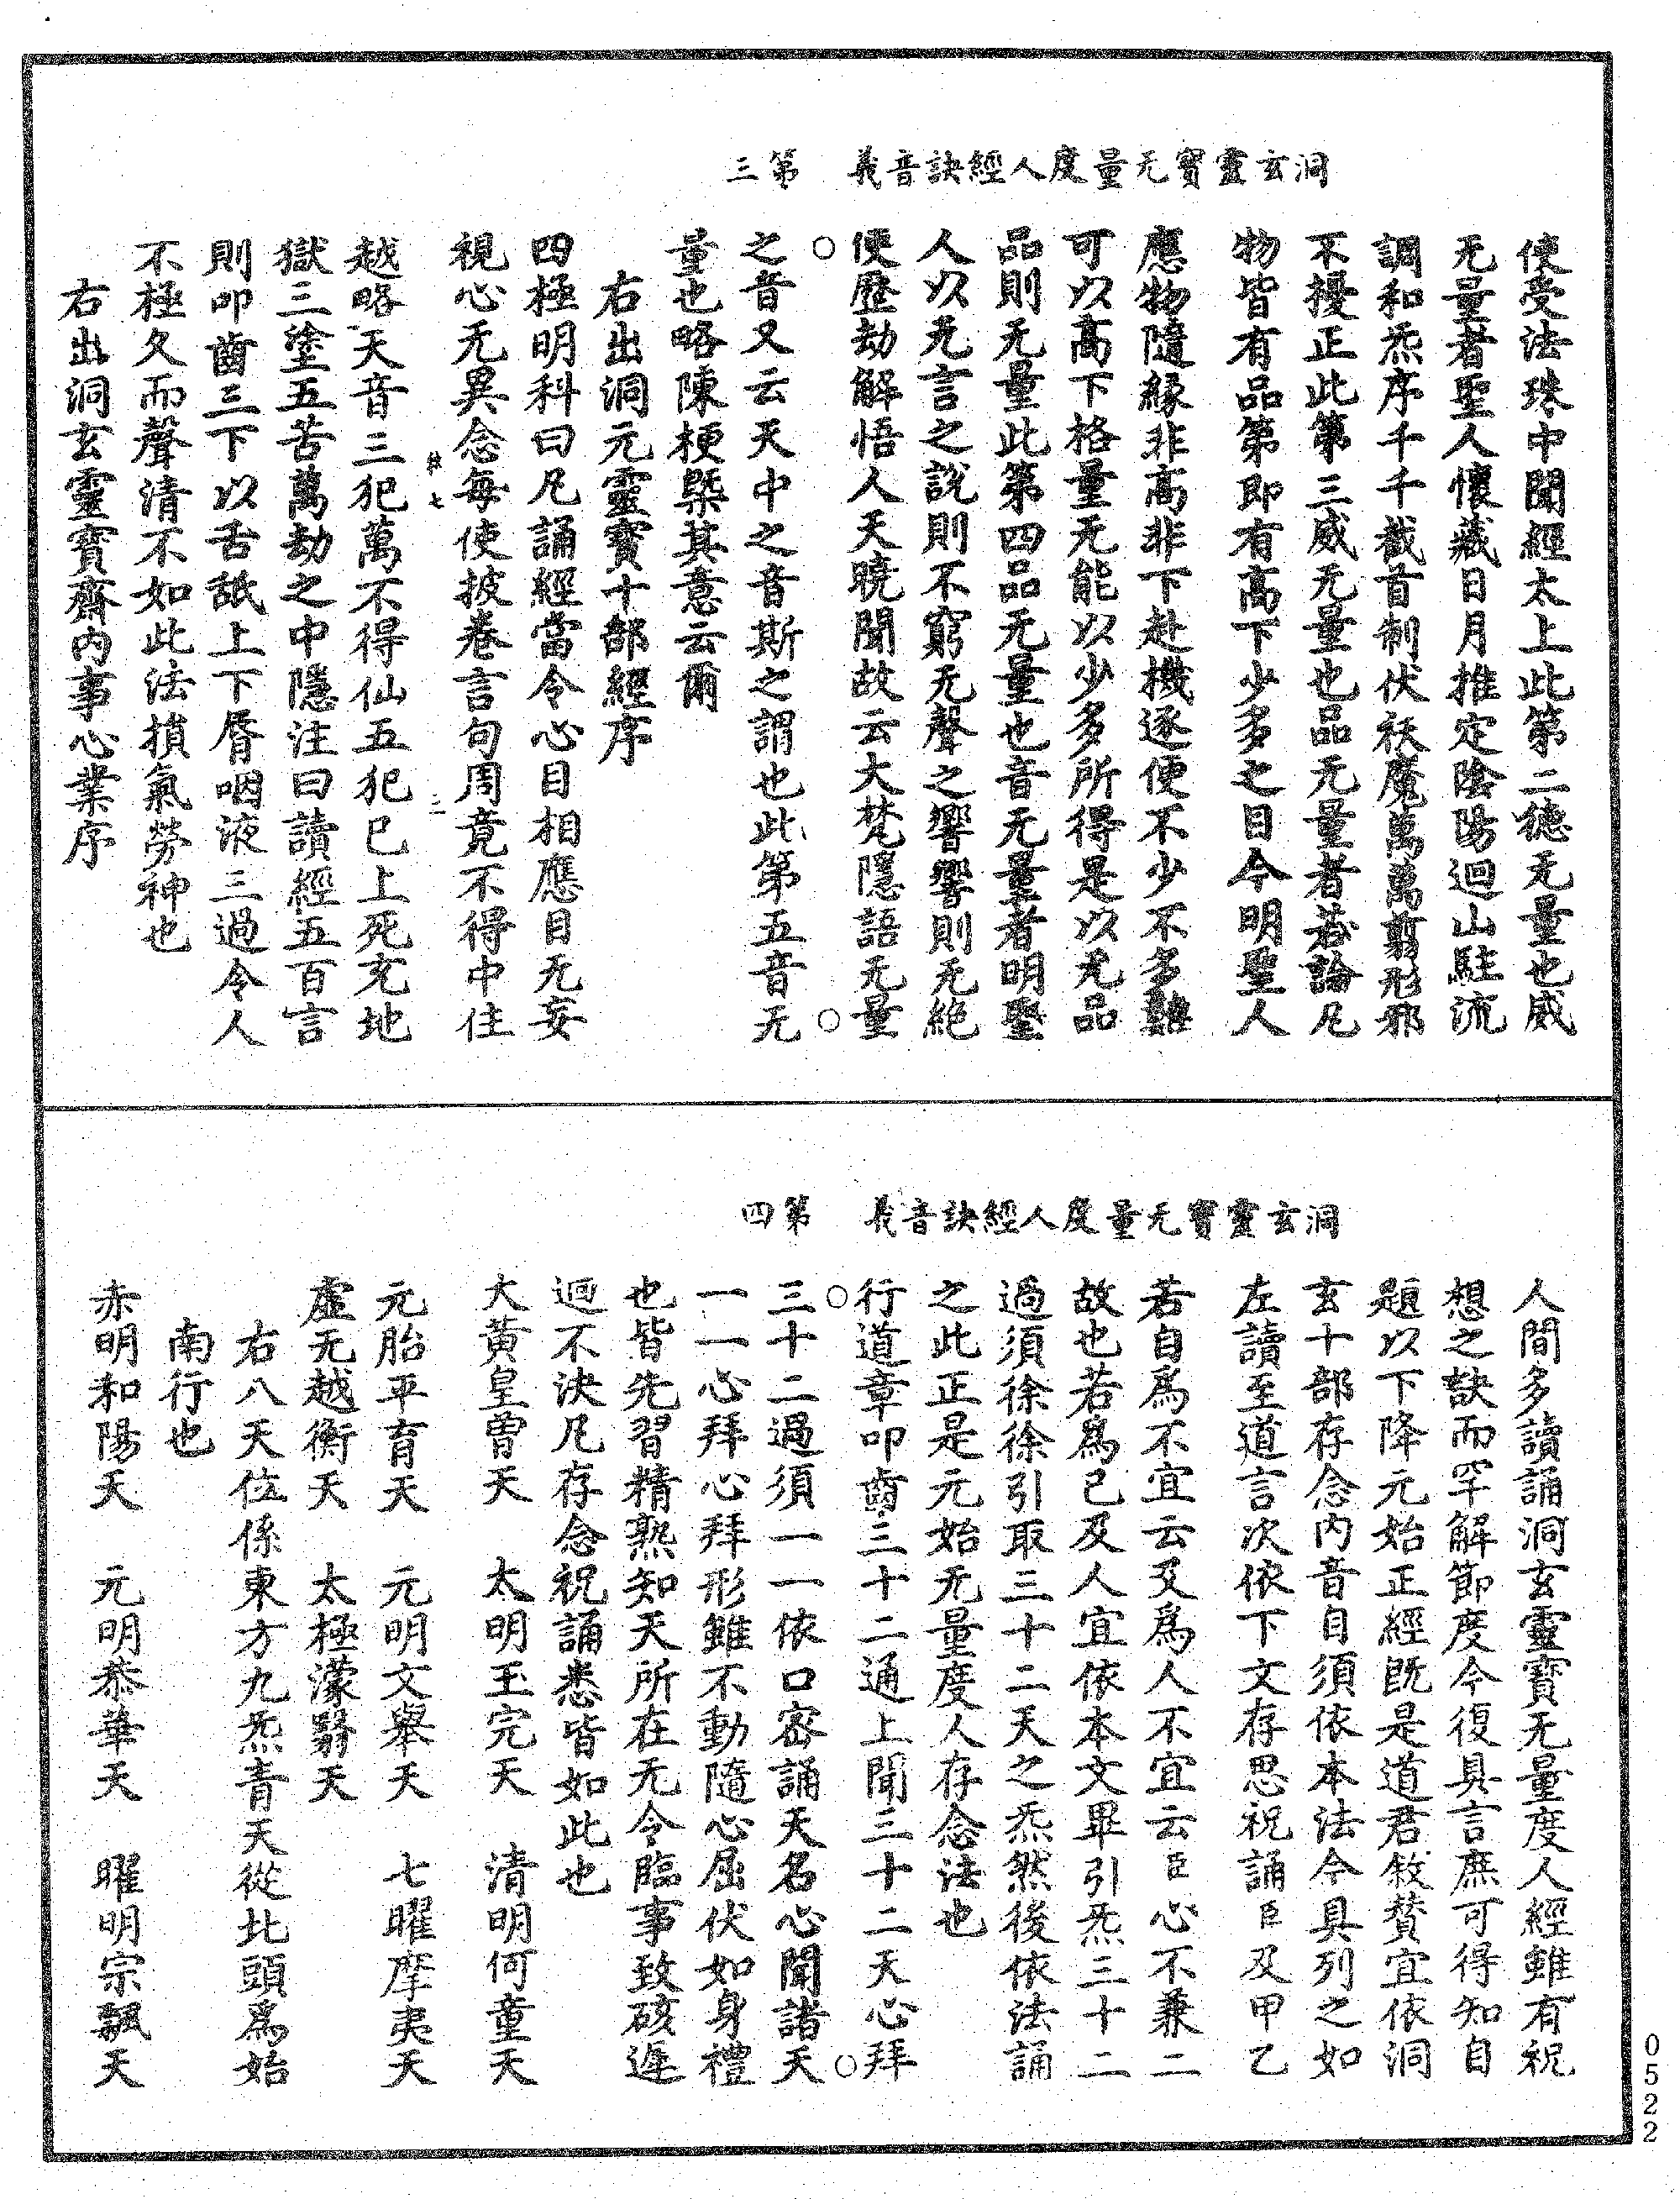 洞玄靈寶无量度人經訣音義　第三
使受法珠中聞經太上此第二德无量也威
无量者聖人懷藏日月推定陰陽迴山駐流
調和炁序千千截首制伏祅魔萬萬翦形邪
不擾正此第三威无量也品无量者若論凡
物皆有品第即有高下少多之目今明聖人
應物隨緣非高非下赴機逐便不少不多難
可以高下格量无能以少多所得是以无品
品則无量此第四品无量也音无量者明聖
人以无言之說則不窮无聲之響響則无絕
便歷劫解悟人天曉聞故云大梵隱語无量
之音又云天中之音斯之謂也此第五音无
量也略陳梗槩其意云爾
右出洞元靈寶十部經序
四極明科曰凡誦經當令心目相應目无妄
視心无異念每使披卷言句周竟不得中住
越略天音三犯萬不得仙五犯已上死充地
獄三塗五苦萬劫之中隱注曰讀經五百言
則叩齒三下以舌舐上下脣咽液三過令人
不極久而聲清不如此法損氣勞神也
右出洞玄靈寶齋內事心業序
洞玄靈寶无量度人經訣音義　第四
人間多讀誦洞玄靈寶无量度人經雖有祝
想之訣而罕解節度今復具言庶可得知自
題以下降元始正經既是道君敘贊宜依洞
玄十部存念內音自須依本法今具列之如
左讀至道言次依下文存思祝誦臣及甲乙
若自爲不宜云又爲人不宜云臣心不兼二
故也若爲已及人宜依本文畢引炁三十二
過須徐徐引取三十二天之炁然後依法誦
之此正是元始无量度人存念法也
行道章叩齒三十二通上聞三十二天心拜
三十二過須一一依口密誦天名心聞諸天
一一心拜心拜形雖不動隨心屈伏如身禮
也皆先習精熟知天所在无令臨事致硋遲
迴不決凡存念祝誦悉皆如此也
大黃皇曾天　太明玉完天　清明何童天
元胎平育天　元明文舉天　七曜摩夷天
虛无越衡天　太極濛翳天
右八天位係東方九炁青天從北頭爲始
南行也
赤明和陽天　元明恭華天　曜明宗飄天
0522